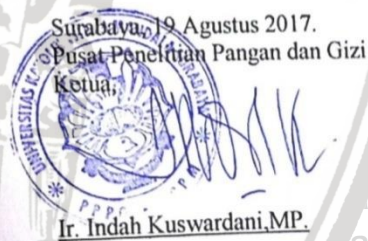 Surabaya, 19 Agustus 2017.
Pusat Penelitian Pangan dan Gizi
Ketua,
UNIVERSITAS
Ir. Indah Kuswardani,MP.